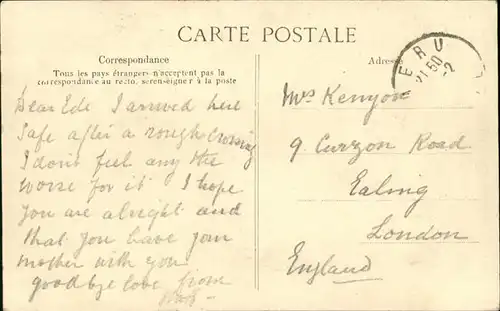 CARTE POSTALE
Correspondance
Tous les pays étrangers n'acceptent pas la
correspondance au recto. se renseigner à la poste
Dear Ede I arrived here
Safe after a rough Crossing
I don't feel any the
worse for it I hope
you are alright and
that you have your
mother with you
goodbye love from
Adresse
E R U
21 50
2
Mrs Kenyon
9 Curzon Road
Ealing
London
England